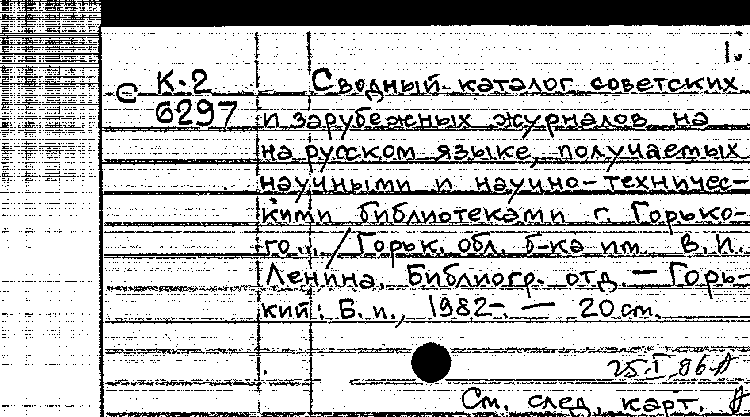 1.
С К-2 Сводный каталог советских
6297 и зарубежных журналов на
на русском языке, получаемых
научными и научно-техничес-
кими библиотеками г. Горько-
го... / Горьк. обл. б-ка им. В.И.
Ленина. Библиогр. отд. — Горь-
кий: Б. и., 1982-. — 20 см.
25.I.86
См. след. карт.